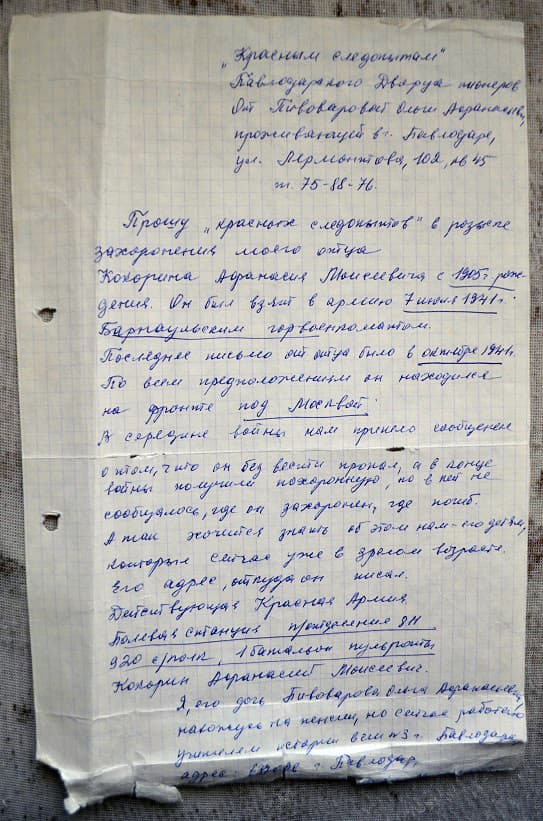 „Красным следопытам"
Павлодарского Дворца пионеров
От Пивоваровой Ольги Афанасьевны,
проживающей в г. Павлодаре,
ул. Лермонтова, 102, кв 45
т. 75-88-76.
Прошу „красных следопытов" в розыске
захоронения моего отца
Кокорина Афанасия Моисеевича с 1905 г рож-
дения. Он был взят в армию 7 июля 1941 г.
Барнаульским горвоенкоматом.
Последнее письмо от отца было в октябре 1941 г.
По всем предположениям он находился
на фронте под Москвой.
В середине войны нам пришло сообщение
о том, что он без вести пропал, а в конце
войны получили похоронную, но в ней не
сообщалось, где он захоронен, где погиб.
А так хочится знать об этом нам - его детям,
которые сейчас уже в зрелом возрасте.
Его адрес, откуда он писал.
Действующая Красная Армия
Полевая станция
920 с/полк, 1 батальон пульроты
Кокорин Афанасий Моисеевич.
Я, его дочь Пивоварова Ольга Афанасьевна,
нахожусь на пенсии, но сейчас работаю
учителем истории в сш №3 г. Павлодара
адрес: г. Павлодар,